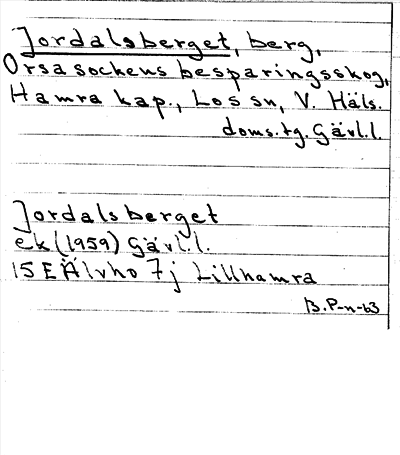 Jordalsberget, berg,
Orsa sockens besparingsskog,
Hamra kap., Los sn, V. Häls.
doms.tg. Gävl.l.
Jordalsberget
ek (1959) Gävl.l.
15 E Älvho 7j Lillhamra
B. P-n-63